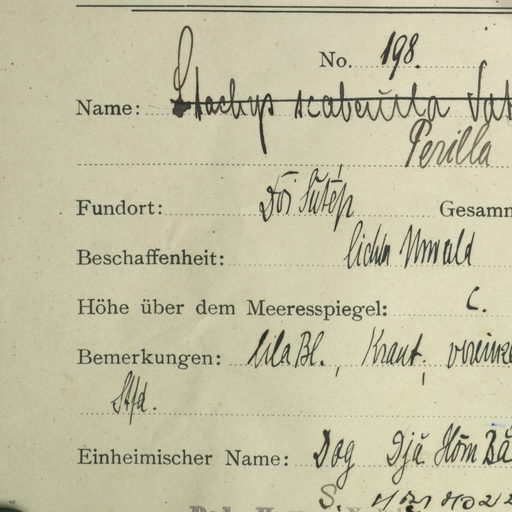 No. 198.
Name: Stachys scaberula Vat
Perilla
Fundort: Doi Sutép Gesamm
Beschaffenheit: lichter Urwald
Höhe über dem Meeresspiegel: c.
Bemerkungen: lila Bl., Kraut, vereinze
Stfd.
Einheimischer Name: Dog Djă Hŏm